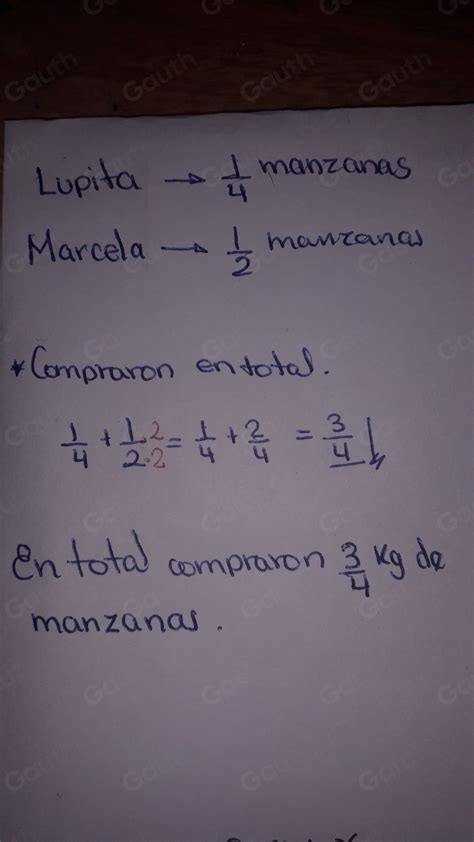 Lupita → 1/4 manzanas
Marcela → 1/2 manzanas
* Compraron en total.
1/4 + 1·2/2·2 = 1/4 + 2/4 = 3/4
En total compraron 3/4 Kg de
manzanas.